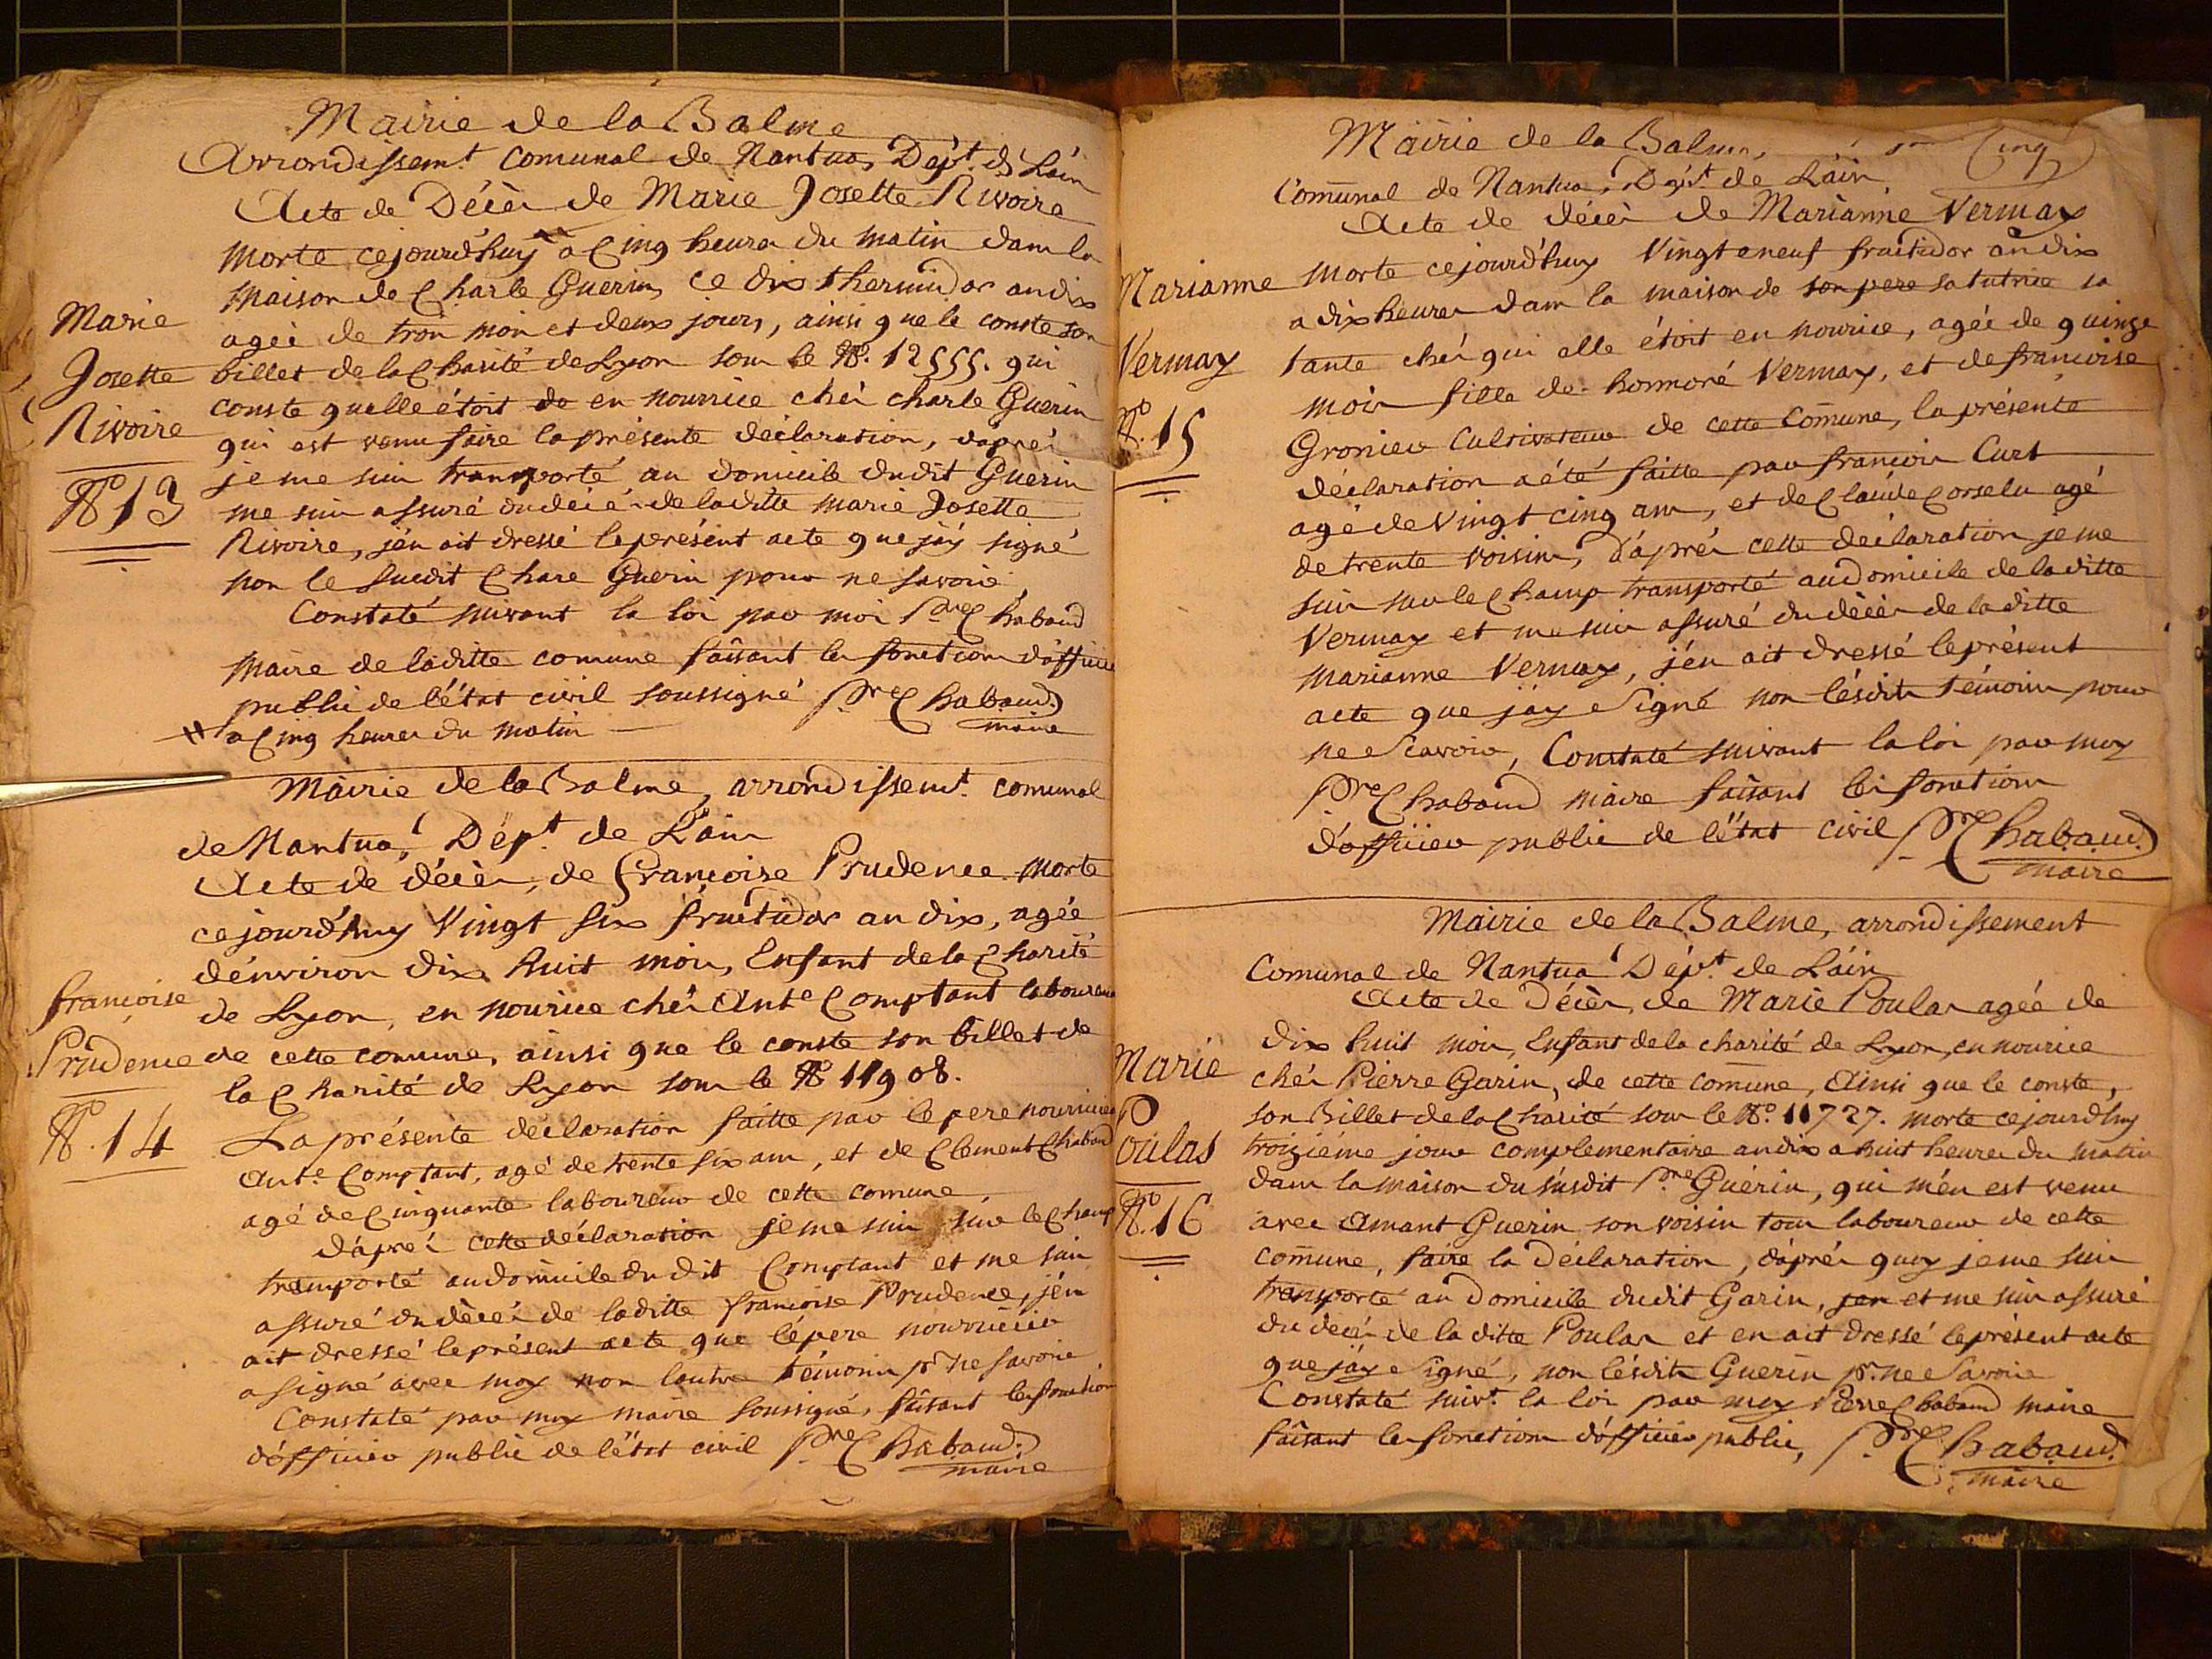 Mairie de la Balme
Arrondissemt. comunal de Nantua, Dépt. de Láin
Acte de Décès de Marie Josette Rivoire
morte cejourd'huy a Cinq heures du matin dans la
maison de Charle Guerin, ce dix thermidor an dix
agée de trois mois et deux jours, ainsi que le conste son
billet de la Charité de Lyon sous le No. 12555. qui
conste quelle étoit de en nourrice chés charle Guerin
qui est venu faire la présente déclaration, d'aprés
je me suis transporté au domicile dudit Guerin
me suis assuré du décés de laditte marie Josette
Rivoire, j'én ait dressé le présent acte que j'áy signé
non le susdit Charle Guerin pour ne savoir
Constaté suivant la loi par moi Pre Chabaud
maire de laditte comune faisant les fonctions d'officier
public de l'état civil soussigné Pre Chabaud
maire
# a Cinq heures du matin
Marie
Josette
Rivoire
No 13
Mairie de la Balme, arrondissemt. comunal
de Nantua, Dépt. de Láin
Acte de décès, de Françoise Prudence morte
cejourd'huy Vingt six fructidor an dix, agée
d'énviron dix huit mois, Enfant de la Charité
de Lyon, en nourice chés Ante Comptant laboureur
de cette comune, ainsi que le conste son billet de
la Charité de Lyon sous le No 11908.
La présente déclaration faitte par le pere nourricier
Ante. Comptant, agé de trente six ans, et de Clement Chabaud
agé de Cinquante laboureur de cette comune,
d'áprés cette déclaration je me suis sur le Champ
transporté au domicile du dit Comptant et me suis
assuré du décés de laditte françoise Prudence, j'én
ait dressé le présent acte que lé pere nourricier
a signé avec moy non lautre témoin pr ne savoir
Constaté par moy maire soussigné, faisant les fonctions
d'officier public de l'état civil Pre Chabaud
maire
françoise
Prudence
No. 14
Mairie de la Balme, Cinq
Comunal de Nantua, Dépt. de Láin
Acte de décès de Marianne Vermay
morte cejourd'huy Vingt eneuf fruitidor an dix
a dix heures dans la maison de son pere sa tutrice sa
tante chés qui elle étoit en nourice, agée de quinze
mois fille de honnoré Vermay, et de françoise
Gronier Cultivateur de cette comune, la présente
déclaration a été faitte par françois Curt
agé de Vingt cinq ans, et de Claude Corselu agé
de trente voisins, d'áprés cette déclaration je me
suis sur le Champ transporté au domicile de laditte
Vermay et me suis assuré du décès de la ditte
marianne Vermay, j'én ait dressé le présent
acte que j'áy Signé non lésdits témoins pour
ne Scavoir, Constaté suivant la loi par moy
Pre Chabaud maire faisant les fonctions
d'officier public de l'état civil Pre Chabaud
maire
Marianne
Vermay
No. 15
Mairie de la Balme, arrondissement
Comunal de Nantua Dépt. de Láin
Acte de Décès, de Marie Poulas agée de
dix huit mois, Enfant de la charité de Lyon, en nourice
chés Pierre Garin, de cette comune, Ainsi que le conste,
son Billet de la Charité sous le No. 11727. morte cejourdhuy
troiziéme jour complementaire an dix a huit heures du matin
dans la maison du súsdit Pre Guérin, qui m'én est venu
avec Amant Guerin son voisin tous laboureur de cette
comune, faire la Déclaration, d'áprés quoy je me suis
transporté au Domicile dudit Garin, jen et me suis assuré
du decés de la ditte Poulas et en ait dressé le présent acte
que j'áy Signé, non lésdits Guerin pr. ne Savoir
Constaté suivt. la loi par moy Pierre Chabaud maire
faisant les fonctions d'officier public, Pre Chabaud
maire
Marie
Poulas
No. 16